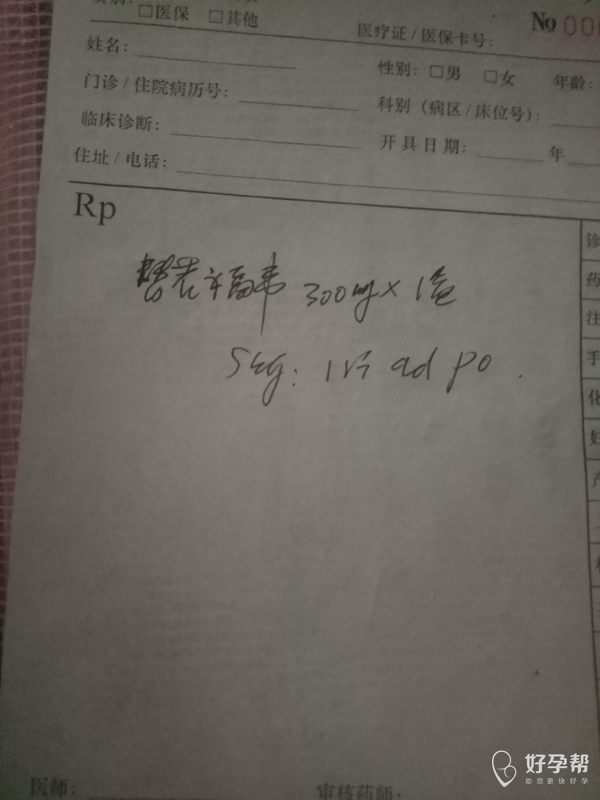 □医保 □其他
医疗证 / 医保卡号: No 00
姓名:
性别: □男 □女 年龄:
门诊 / 住院病历号:
科别（病区 / 床位号）:
临床诊断:
开具日期: 年
住址 / 电话:
Rp
诊
药
注
手
化
替诺福韦 300mg × 1盒
Sig: 1片 qd po.
医师:
审核药师:
好孕帮
助您更快好孕